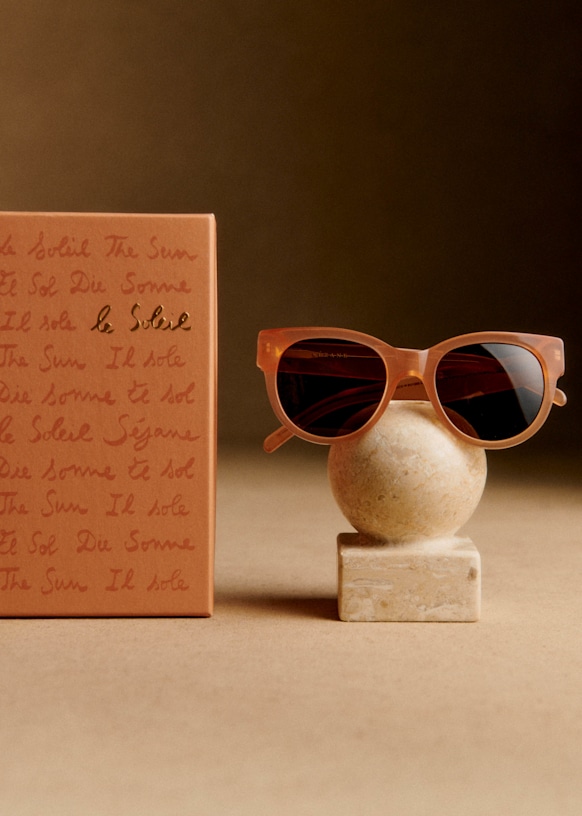 le Soleil The Sun
El Sol Die Sonne
Il sole le Soleil
The Sun Il sole
Die sonne El sol
le Soleil Sézane
Die sonne El sol
The Sun Il sole
El Sol Die Sonne
The Sun Il sole
SÉZANE